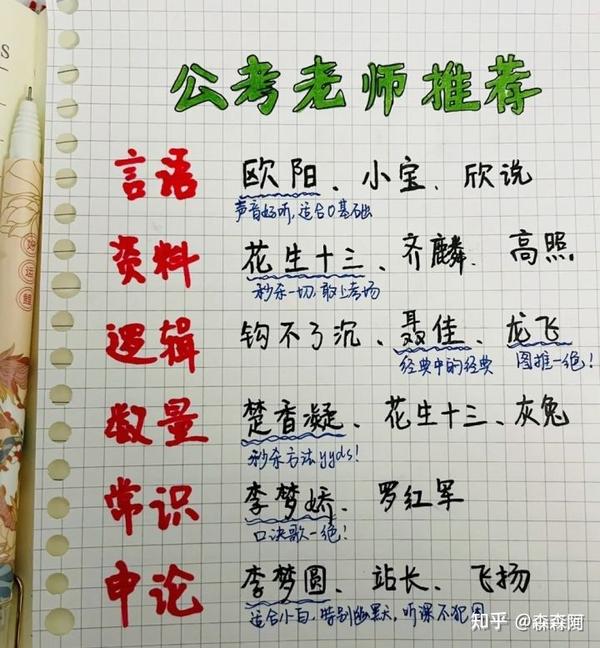 公考老师推荐
言语 欧阳、小宝、欣说
声音好听,适合0基础
资料 花生十三、齐麟、高照
秒杀一切,敢上考场
逻辑 钩不了沉、聂佳、龙飞
经典中的经典 图推一绝!
数量 楚香凝、花生十三、灰兔
秒杀方法yyds!
常识 李梦娇、罗红军
口诀歌一绝!
申论 李梦圆、站长、飞扬
适合小白,特别幽默,听课不犯困
知乎 @森森阿
好运
S